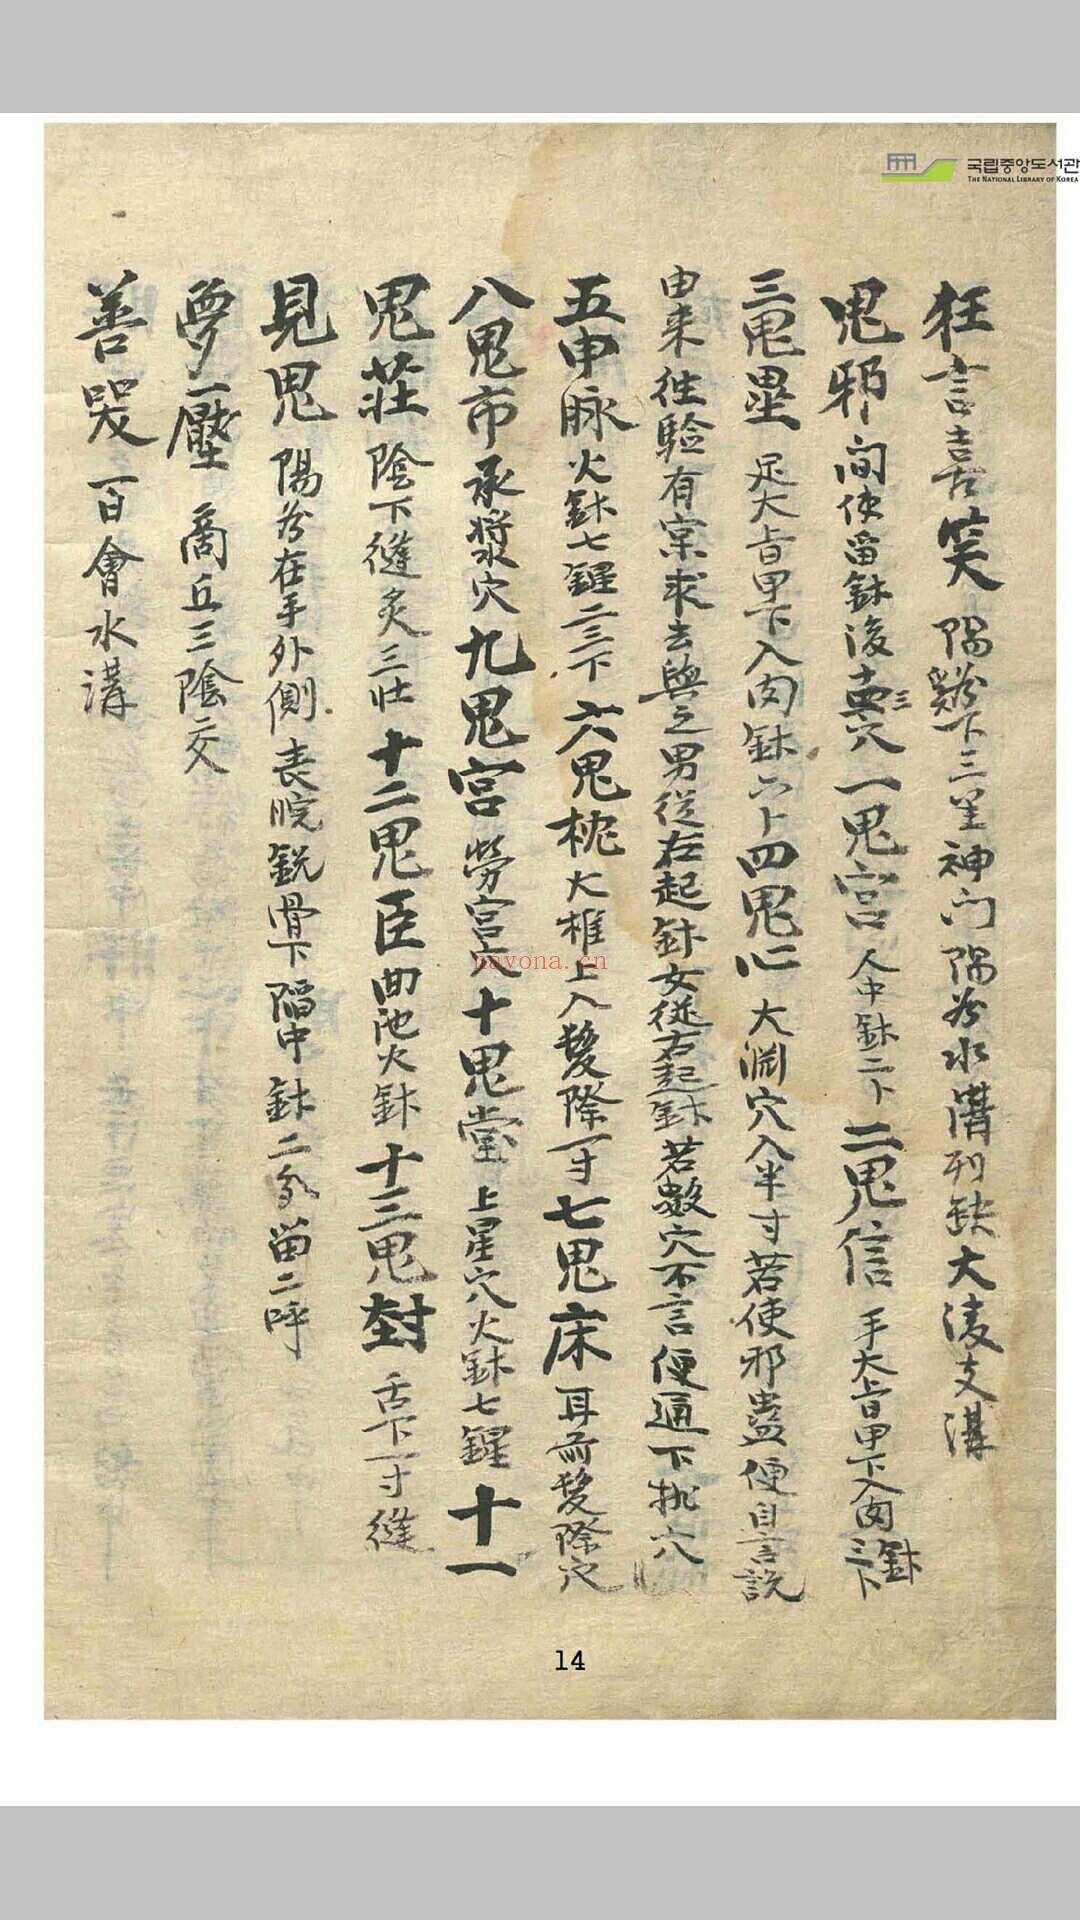 국립중앙도서관
THE NATIONAL LIBRARY OF KOREA
狂言喜笑 陽谿下三里神門陽谷水溝列缺大淩支溝
鬼邪 間使留鈢後十三穴一鬼宮 人中鈢二卜二鬼信 手大旨甲下入肉三卜鈢
三鬼壘 足大旨甲下入肉鈢六卜四鬼心 大渊穴入半寸若使邪蠱便自言說
由来徃驗有宲求去與之男從左起鈢女從右起鈢若數穴不言便通下挑穴
五申脉火鈢七鍟二三下六鬼枕大椎上入髮際一寸七鬼床耳前髮際穴
八鬼市承漿穴九鬼宮勞宮穴十鬼堂上星穴火鈢七鍟十一
鬼莊陰下縫灸三壮十二鬼臣曲池火鈢十三鬼封 舌下一寸縫
見鬼 陽谷在手外側表腕銳骨下陷中鈢二分留二呼
夢魘 商丘三陰交
善哭百會水溝
navona.cn
14